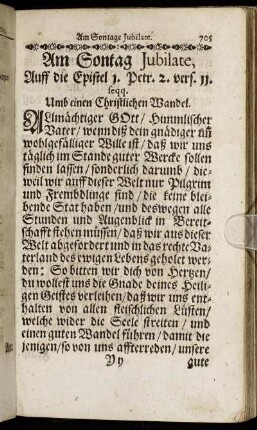 Am Sontage Jubilate. 705
Am Sontag Jubilate,
Auff die Epistel 1. Petr. 2. vers. 11.
seqq.
Umb einen Christlichen Wandel.
ALlmächtiger GOtt/ Himmlischer
Vater/ wenn diß dein gnädiger uñ
wohlgefälliger Wille ist/ daß wir uns
täglich im Stande guter Wercke sollen
finden lassen/ sonderlich darumb/ die-
weil wir auff dieser Welt nur Pilgrim
und Frembdlinge sind/ die keine blei-
bende Stat haben/ und deswegen alle
Stunden und Augenblick in Bereit-
schafft stehen müssen/ daß wir aus dieser
Welt abgefordert und in das rechte Va-
terland des ewigen Lebens geholet wer-
den: So bitten wir dich von Hertzen/
du wollest uns die Gnade deines Heili-
gen Geistes verleihen/ daß wir uns ent-
halten von allen fleischlichen Lüsten/
welche wider die Seele streiten/ und
einen guten Wandel führen/ damit die
jenigen/ so von uns affterreden/ unsere
Yy gute